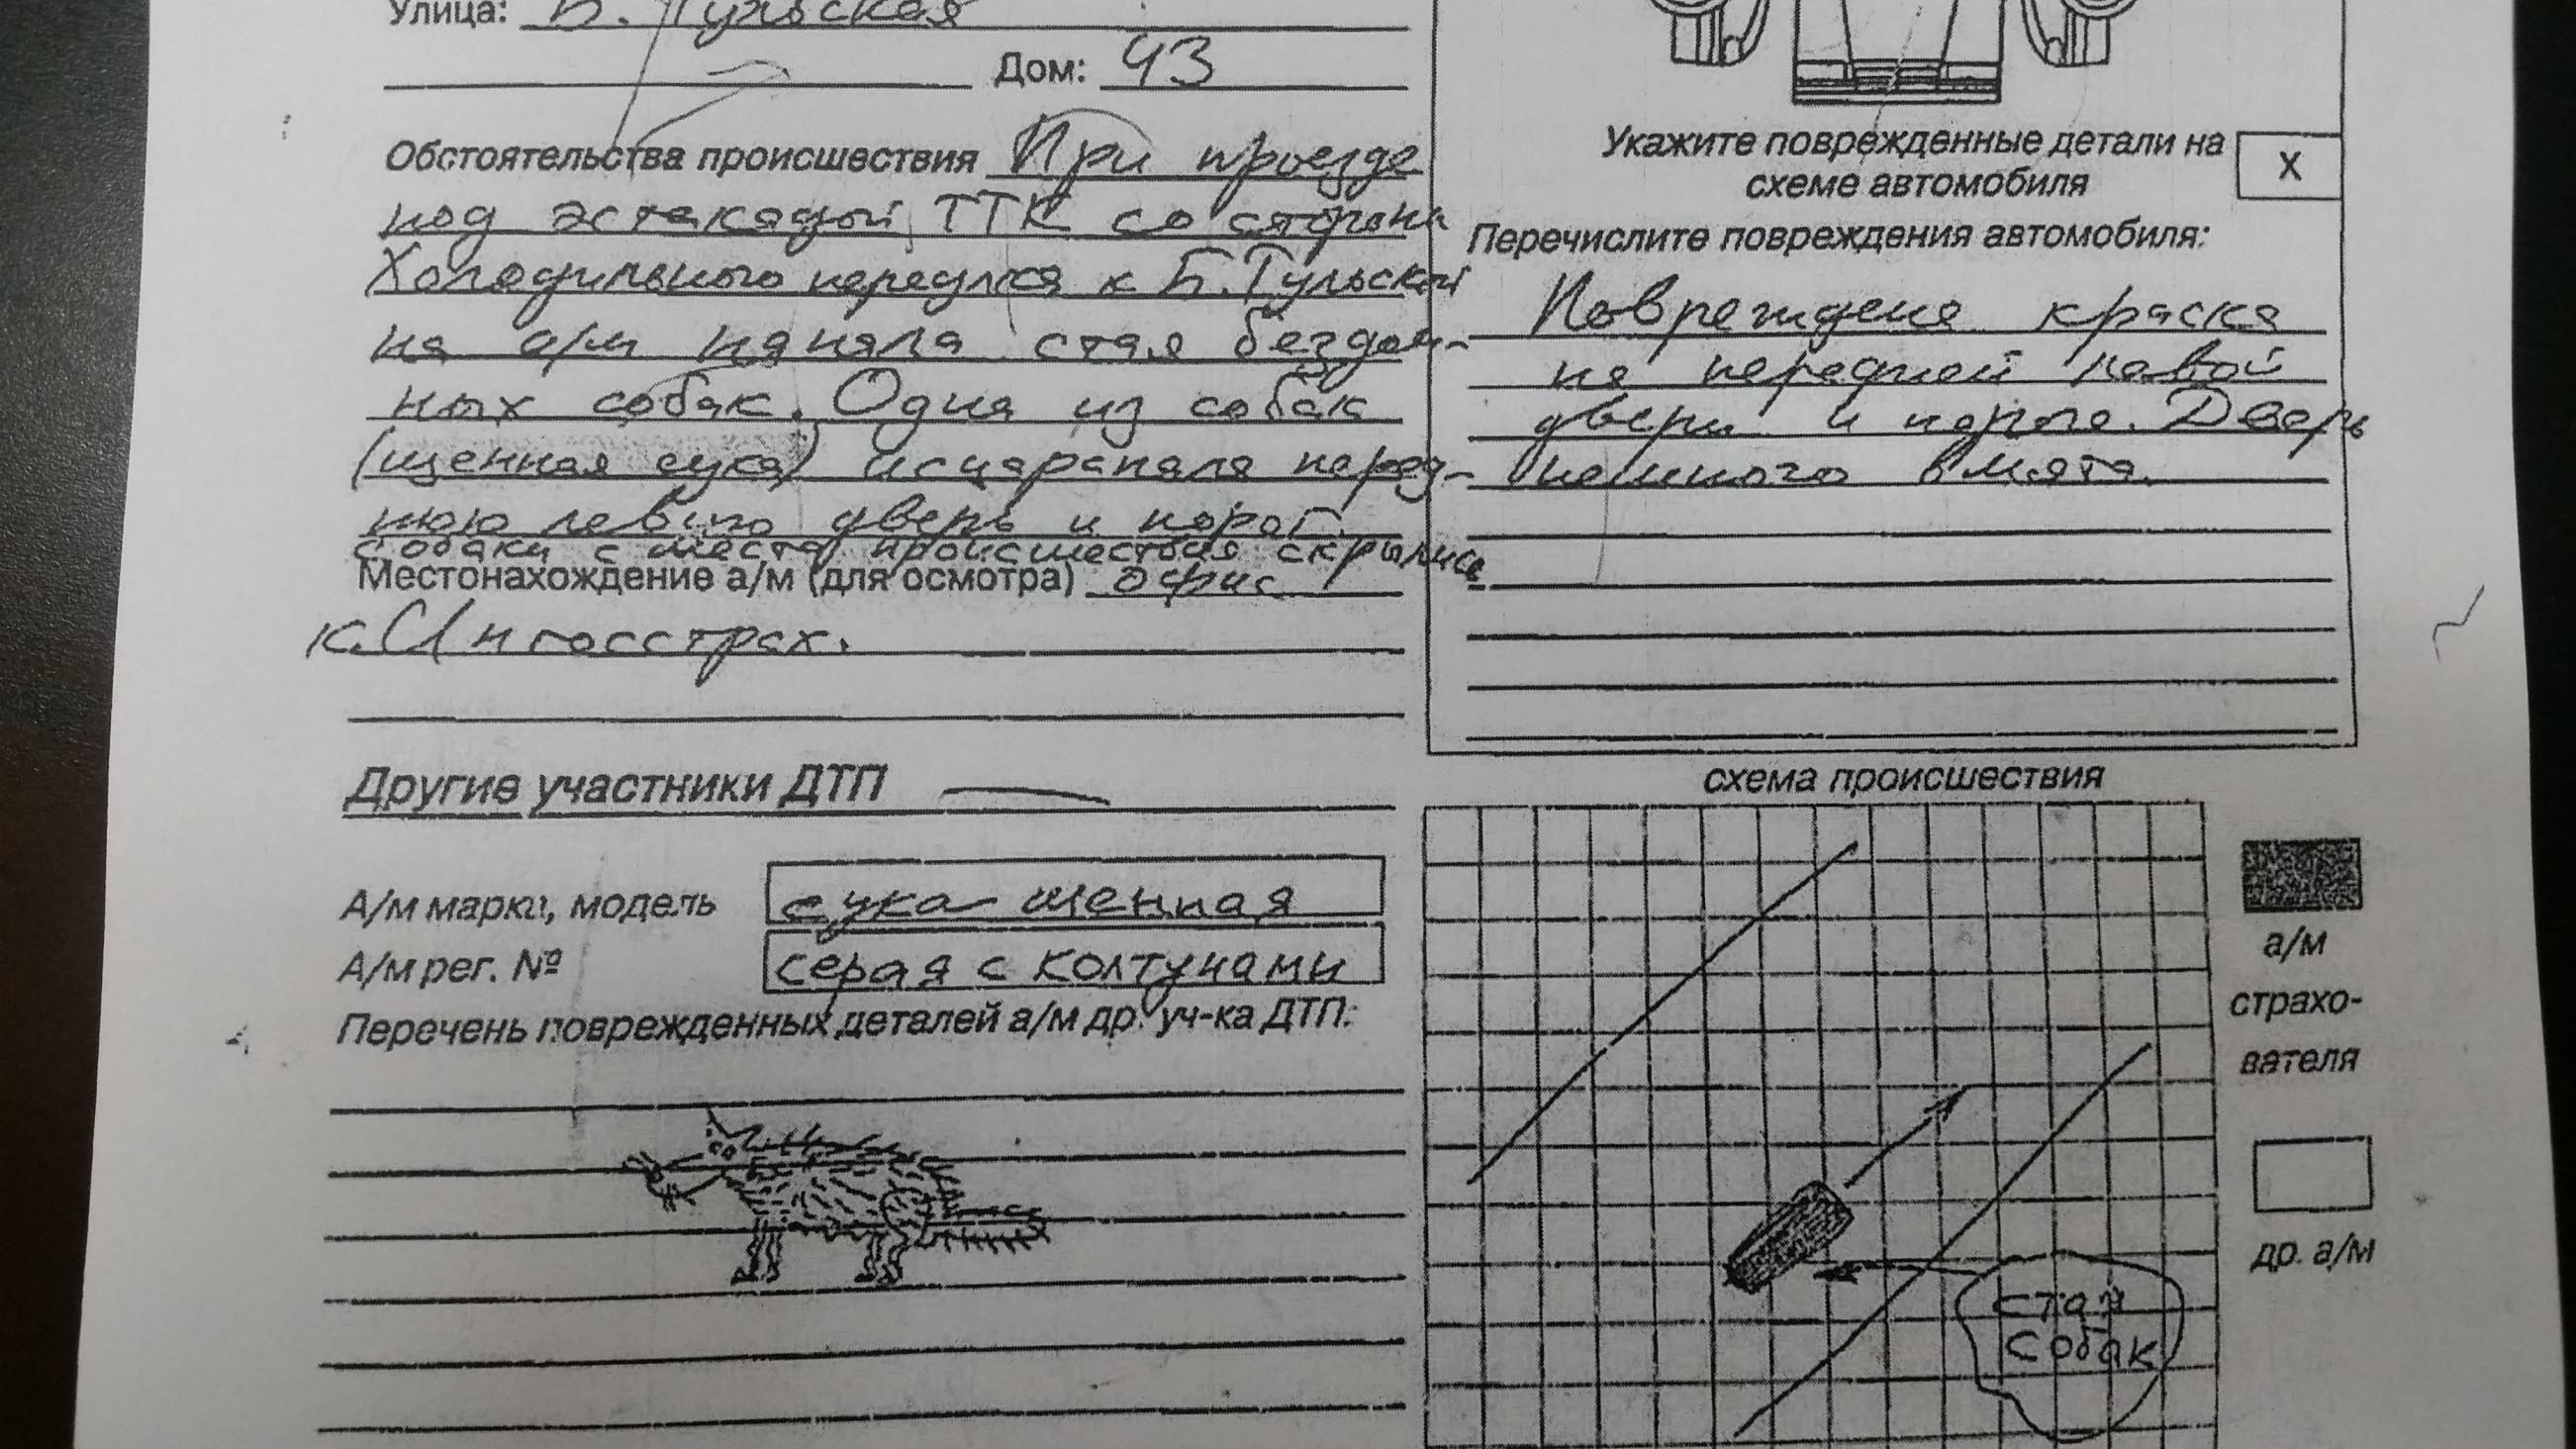 Улица: Б. Тульская
Дом: 43
Обстоятельства происшествия При проезде
под эстакадой ТТК со стороны
Холодильного переулка к Б. Тульской
на а/м напала стая бездом-
ных собак. Одна из собак
(щенная сука) исцарапала перед-
нюю левую дверь и порог.
Собаки с места происшествия скрылись
Местонахождение а/м (для осмотра) офис
к. Ингосстрах.
Укажите поврежденные детали на
схеме автомобиля
X
Перечислите повреждения автомобиля:
Повреждена краска
на передней левой
двери и пороге. Дверь
немного вмята.
Другие участники ДТП
А/м марки, модель сука щенная
А/м рег. № серая с колтунами
Перечень поврежденных деталей а/м др. уч-ка ДТП:
схема происшествия
стая
собак
а/м
страхо-
вателя
др. а/м